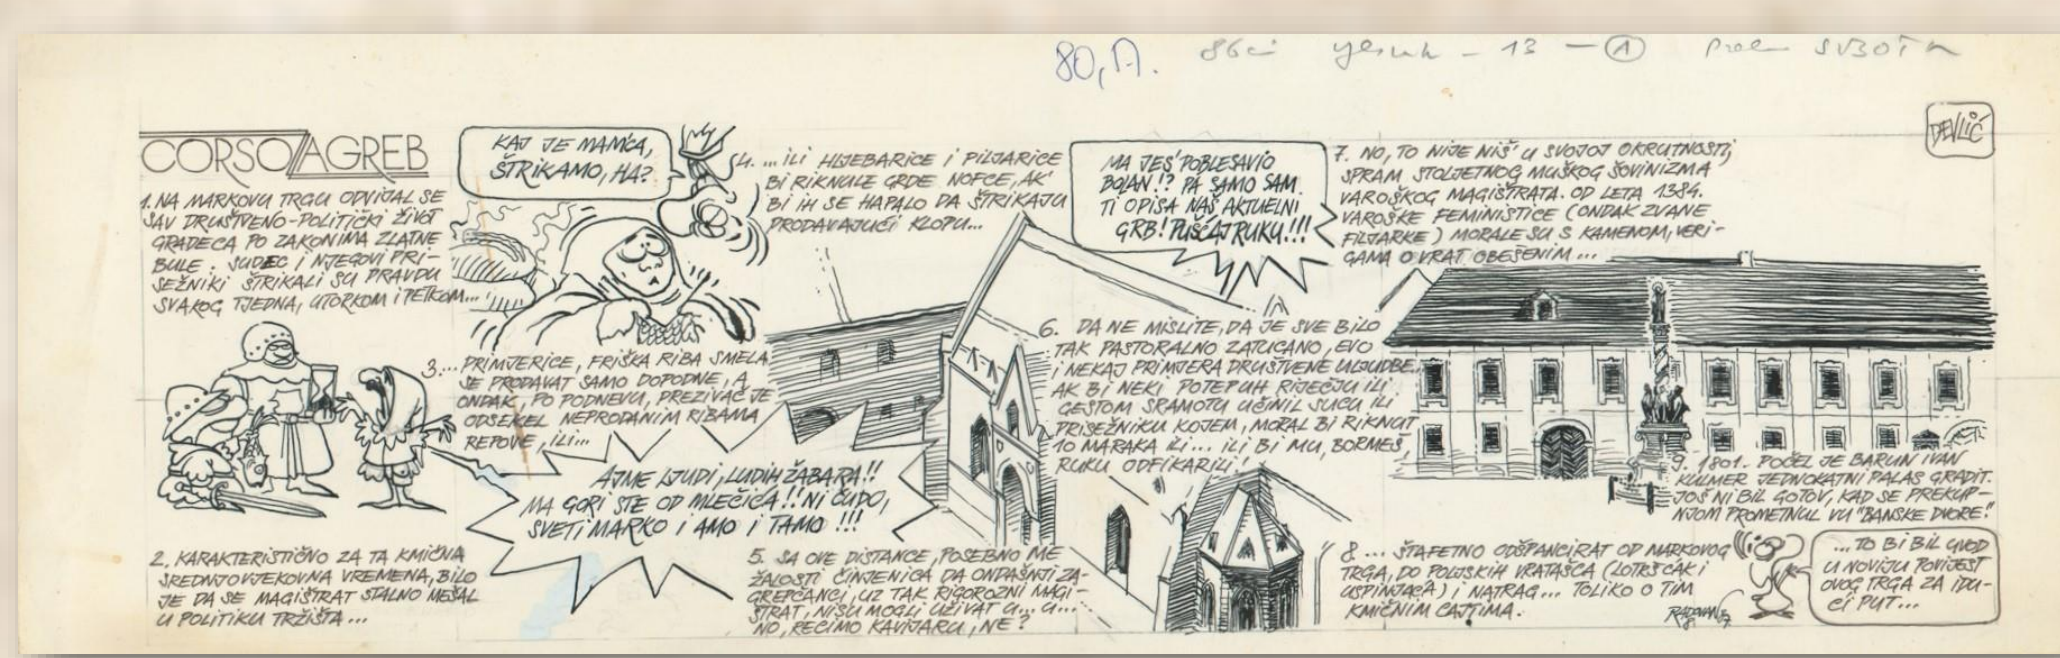 80, A.
13 - 1
SUBOTA
CORSO ZAGREB
DEVLIĆ
1. NA MARKOVU TRGU ODVIJAL SE
SAV DRUŠTVENO-POLITIČKI ŽIVOT
GRADECA PO ZAKONIMA ZLATNE
BULE. SUDEC I NJEGOVI PRI-
SEŽNIKI ŠTRIKALI SU PRAVDU
SVAKOG TJEDNA, UTORKOM I PETKOM...
2. KARAKTERISTIČNO ZA TA KMIČNA
SREDNJOVJEKOVNA VREMENA, BILO
JE DA SE MAGIŠTRAT STALNO MEŠAL
U POLITIKU TRŽIŠTA...
KAJ JE MAMCA,
ŠTRIKAMO, HA?
3. ...PRIMJERICE, FRIŠKA RIBA SMELA
SE PRODAVAT SAMO DOPODNE, A
ONDAK, PO PODNEVU, PREZIVAČ JE
ODSEKEL NEPRODANIM RIBAMA
REPOVE, ILI...
AJME LJUDI, LUDIH ŽABARA!!
MA GORI STE OD MLEČIĆA!! NI ČUDO,
SVETI MARKO I AMO I TAMO !!!
4. ...ILI HLJEBARICE I PILJARICE
BI RIKNULE GRDE NOFCE, AK'
BI IH SE HAPALO DA ŠTRIKAJU
PRODAVAJUĆI KLOPU...
5. SA OVE DISTANCE, POSEBNO ME
ŽALOSTI ČINJENICA DA ONDAŠNJI ZA-
GREPČANCI, UZ TAK RIGOROZNI MAGI-
ŠTRAT, NISU MOGLI UŽIVAT U... U...
NO, RECIMO KAVIJARU, NE?
MA JES' POBLESAVIO
BOLAN!? PA SAMO SAM
TI OPISA NAŠ AKTUELNI
GRB! PUŠĆAJ RUKU!!!
6. DA NE MISLITE, DA JE SVE BILO
TAK PASTORALNO ZATUCANO, EVO
I NEKAJ PRIMJERA DRUŠTVENE ULJUDBE.
AK BI NEKI POTEPUH RIJEČJU ILI
GESTOM SRAMOTU UČINIL SUCU ILI
PRISEŽNIKU KOJEM, MORAL BI RIKNUT
10 MARAKA ILI... ILI BI MU, BORMEŠ,
RUKU ODFIKARILI!
7. NO, TO NIJE NIŠ' U SVOJOJ OKRUTNOSTI,
SPRAM STOLJETNOG MUŠKOG ŠOVINIZMA
VAROŠKOG MAGIŠTRATA. OD LETA 1384.
VAROŠKE FEMINISTICE (ONDAK ZVANE
FILJARKE) MORALE SU S KAMENOM, VERI-
GAMA O VRAT OBEŠENIM...
8 ... ŠTAFETNO ODŠPANCIRAT OD MARKOVOG
TRGA, DO POLJSKIH VRATAŠCA (LOTRŠČAK I
USPINJAČA) I NATRAG... TOLIKO O TIM
KMIČNIM CAJTIMA.
9. 1801. POČEL JE BARUN IVAN
KULMER JEDNOKATNI PALAS GRADIT.
JOŠ NI BIL GOTOV, KAD SE PREKUP-
NJOM PROMETNUL VU "BANSKE DVORE."
RADOVAN
...TO BI BIL UVOD
U NOVIJU POVIJEST
OVOG TRGA ZA IDU-
ĆI PUT...